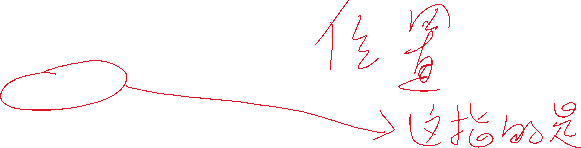 位置
这指的是